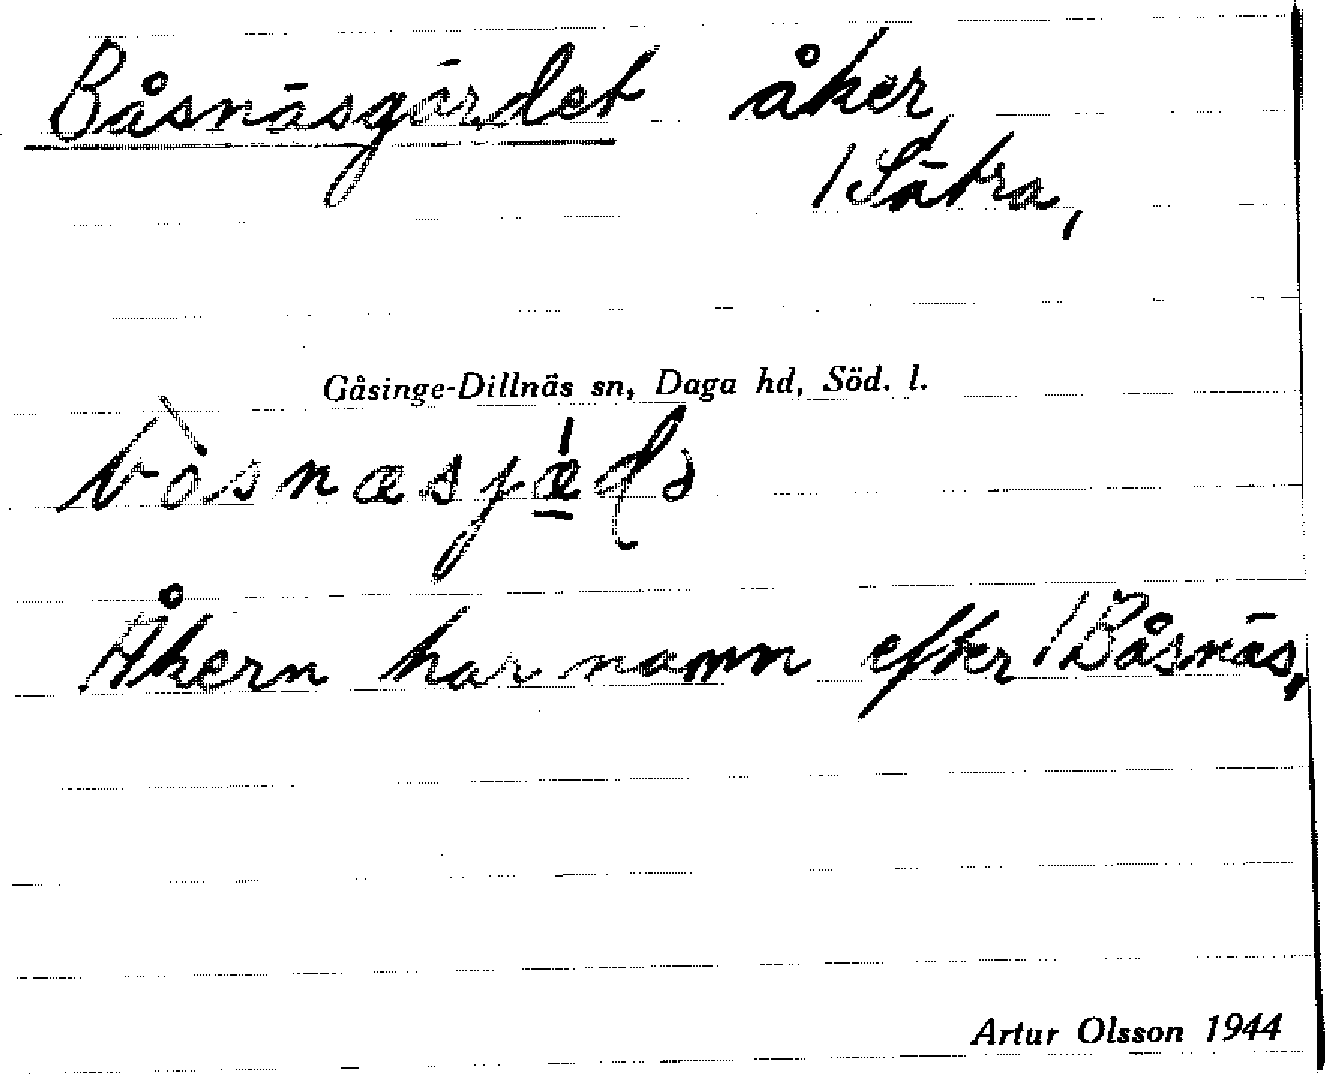 Båsnäsgärdet åker
/Sätra,
Gåsinge-Dillnäs sn, Daga hd, Söd. l.
Åkern har namn efter /Båsnäs,
Artur Olsson 1944